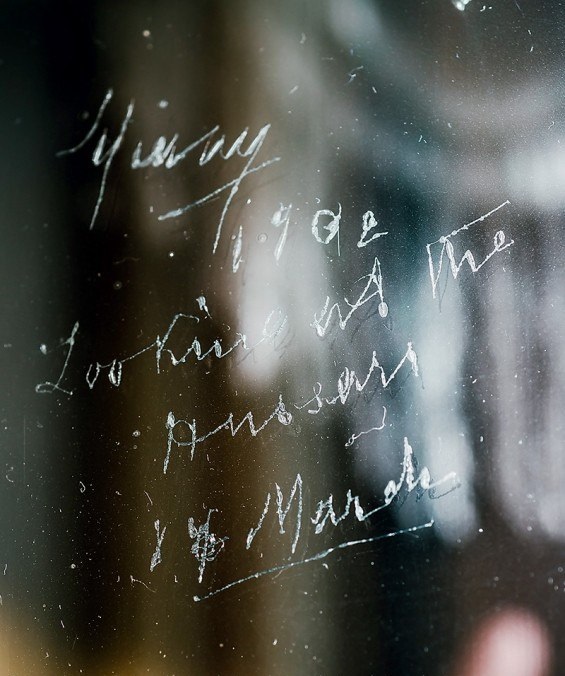 Nicky
1902
Looking at the
Hussars
March